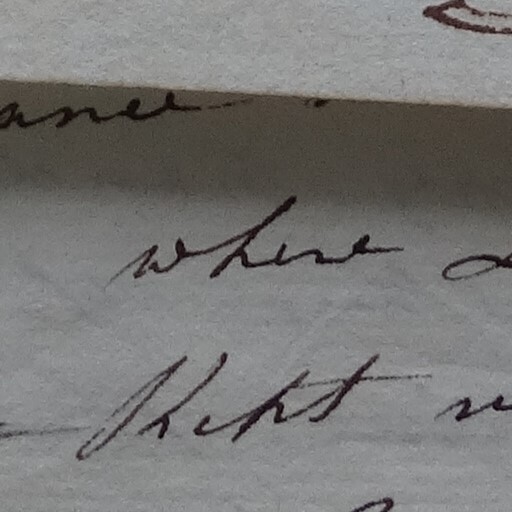 ance
where
Kept